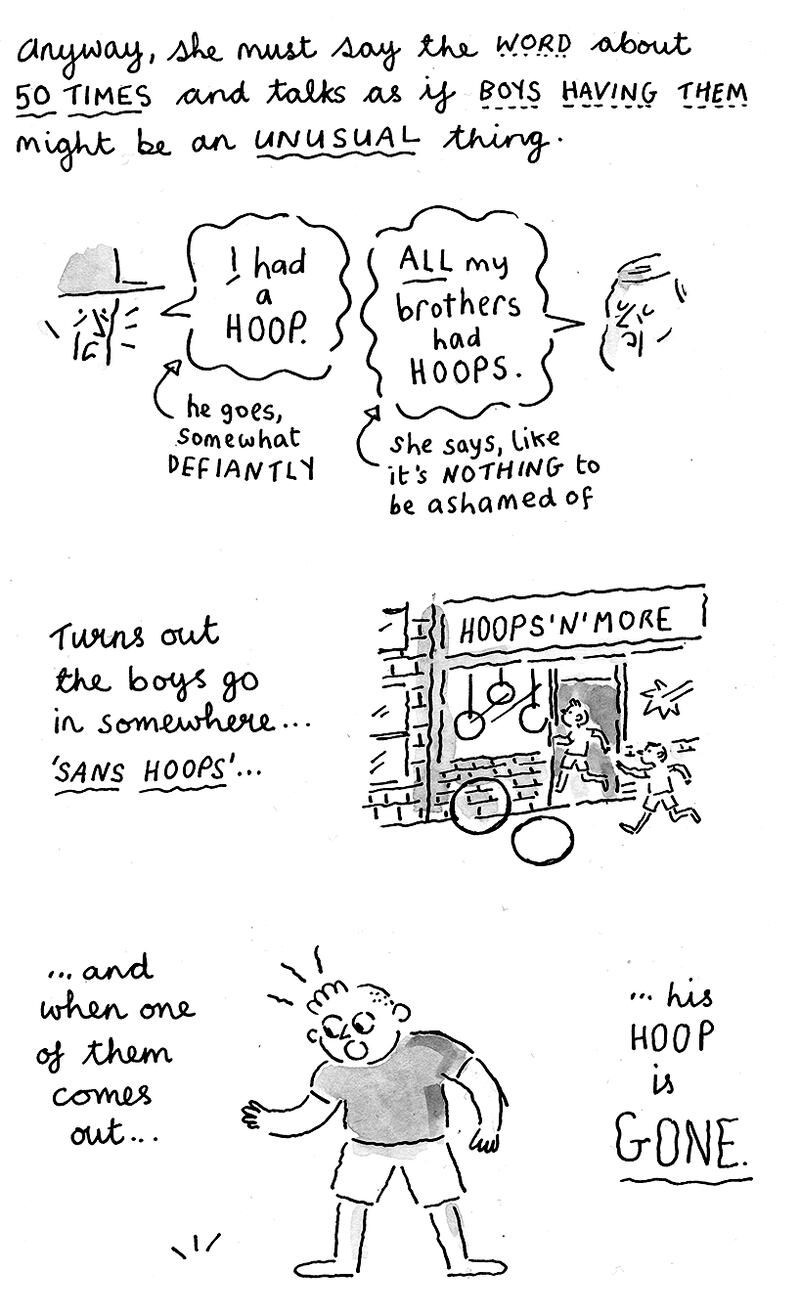 Anyway, she must say the WORD about
50 TIMES and talks as if BOYS HAVING THEM
might be an UNUSUAL thing.
I had
a
HOOP.
he goes,
somewhat
DEFIANTLY
ALL my
brothers
had
HOOPS.
she says, like
it's NOTHING to
be ashamed of
Turns out
the boys go
in somewhere...
'SANS HOOPS'...
HOOPS'N'MORE
...and
when one
of them
comes
out...
... his
HOOP
is
GONE.